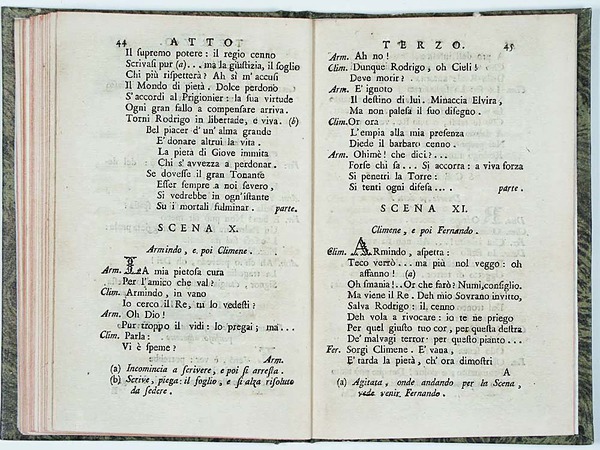 44 ATTO
Il supremo potere: il regio cenno
Scrivasi pur (a)... ma la giustizia, il soglio
Chi più rispetterà? Ah sì m'accusi
Il Mondo di pietà. Dolce perdono
S'accordi al Prigionier: la sua virtude
Ogni gran fallo a compensare arriva.
Torni Rodrigo in libertade, e viva. (b)
Bel piacer d'un' alma grande
E' donare altrui la vita.
La pietà di Giove immita
Chi s'avvezza a perdonar.
Se dovesse il gran Tonante
Esser sempre a noi severo,
Si vedrebbe in ogn'istante
Su i mortali fulminar. parte.
SCENA X.
Armindo, e poi Climene.
Arm. LA mia pietosa cura
Per l'amico che val?
Clim. Armindo, in vano
Io cerco il Re, tu lo vedesti?
Arm. Oh Dio!
Pur troppo il vidi: lo pregai; ma...
Clim. Parla:
Vi è speme?
Arm.
(a) Incomincia a scrivere, e poi si arresta.
(b) Scrive, piega: il foglio, e si alza risoluto
da sedere.
TERZO. 45
Arm. Ah no!
Clim. Dunque Rodrigo, oh Cieli!
Deve morir?
Arm. E' ignoto
Il destino di lui. Minaccia Elvira,
Ma non palesa il suo disegno.
Clim. Or ora
L'empia alla mia presenza
Diede il barbaro cenno.
Arm. Ohimè! che dici?...
Forse chi sa... Si accorra: a viva forza
Si penetri la Torre:
Si tenti ogni difesa.... parte.
SCENA XI.
Climene, e poi Fernando.
Clim. ARmindo, aspetta:
Teco verrò... ma più nol veggo: oh
affanno! (a)
Oh smania!.. Or che farò? Numi, consiglio.
Ma viene il Re. Deh mio Sovrano invitto,
Salva Rodrigo: il cenno
Deh vola a rivocare: io te ne priego
Per quel giusto tuo cor, per questa destra
De' malvagi terror: per questo pianto...
Fer. Sorgi Climene. E' vana,
E' tarda la pietà, ch'ora dimostri
A
(a) Agitata, onde andando per la Scena,
vede venir Fernando.